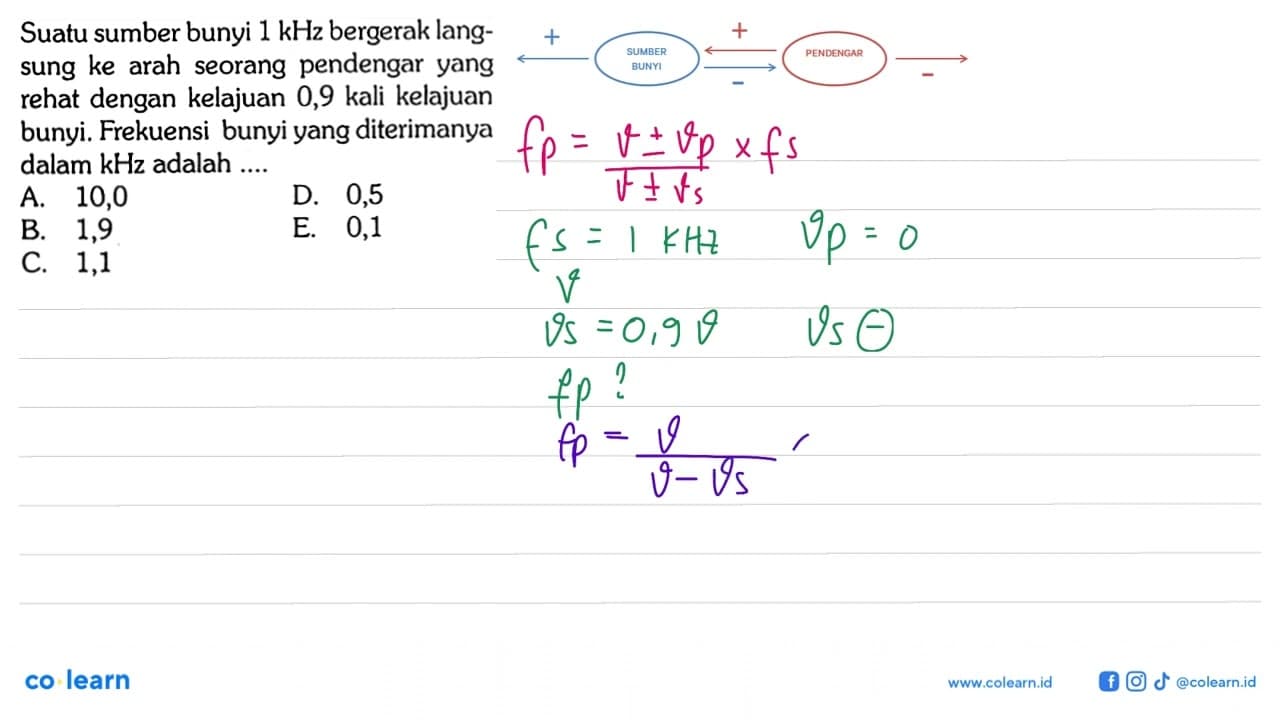 Suatu sumber bunyi 1 kHz bergerak lang-
sung ke arah seorang pendengar yang
rehat dengan kelajuan 0,9 kali kelajuan
bunyi. Frekuensi bunyi yang diterimanya
dalam kHz adalah ....
A. 10,0
B. 1,9
C. 1,1
D. 0,5
E. 0,1
+
SUMBER
BUNYI
+
-
PENDENGAR
-
fp = v ± vp × fs
v ± vs
fs = 1 KHz
vp = 0
v
vs = 0,9 v
vs ⊖
fp ?
fp = v
v - vs
co learn
www.colearn.id
@colearn.id